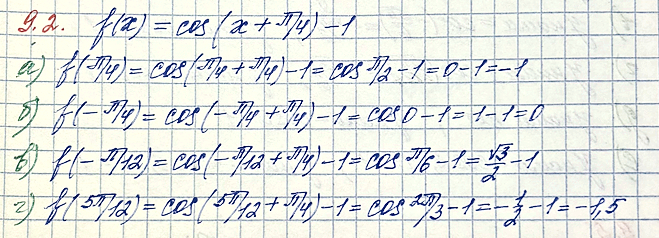 9.2. f(x) = cos(x + π/4) - 1
а) f(π/4) = cos(π/4 + π/4) - 1 = cos π/2 - 1 = 0 - 1 = -1
б) f(-π/4) = cos(-π/4 + π/4) - 1 = cos 0 - 1 = 1 - 1 = 0
в) f(-π/12) = cos(-π/12 + π/4) - 1 = cos π/6 - 1 = √3/2 - 1
г) f(5π/12) = cos(5π/12 + π/4) - 1 = cos 2π/3 - 1 = -1/2 - 1 = -1,5